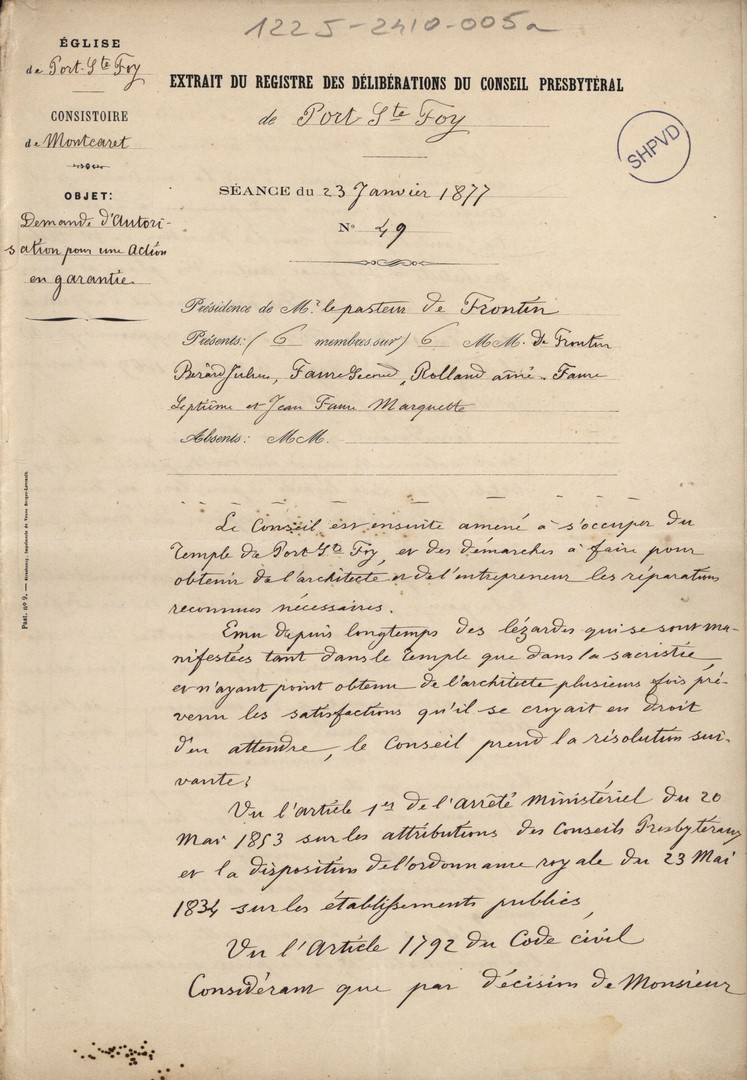 1225-2410-005a
ÉGLISE
de Port-Ste Foy
CONSISTOIRE
de Montcaret
OBJET:
Demande d'Autori-
sation pour une Action
en garantie.
EXTRAIT DU REGISTRE DES DÉLIBÉRATIONS DU CONSEIL PRESBYTÉRAL
de Port Ste Foy
SHPVD
SÉANCE du 23 Janvier 1877
No 49
Présidence de Mr. le pasteur de Frontin
Présents: ( 6 membres sur ) 6 MM. de Frontin
Berard Julien, Faure Second, Rolland aîné. Faure
Septième et Jean Faure Marquette
Absents: MM.
Past. no 2. — Strasbourg, Imprimerie de Veuve Berger-Levrault.
Le Conseil est ensuite amené à s'occuper du
Temple du Port Ste Foy, et des démarches à faire pour
obtenir de l'architecte et de l'entrepreneur les réparations
reconnues nécessaires.
Emu depuis longtemps des lézardes qui se sont ma-
nifestées tant dans le Temple que dans la sacristie,
et n'ayant point obtenu de l'architecte plusieurs fois pré-
venu les satisfactions qu'il se croyait en droit
d'en attendre, le Conseil prend la résolution sui-
vante:
Vu l'article 1er de l'arrêté ministériel du 20
Mai 1853 sur les attributions des Conseils Presbytéraux
et la disposition de l'ordonnance royale du 23 Mai
1834 sur les établissements publics,
Vu l'Article 1792 du Code civil
Considérant que par décision de Monsieur